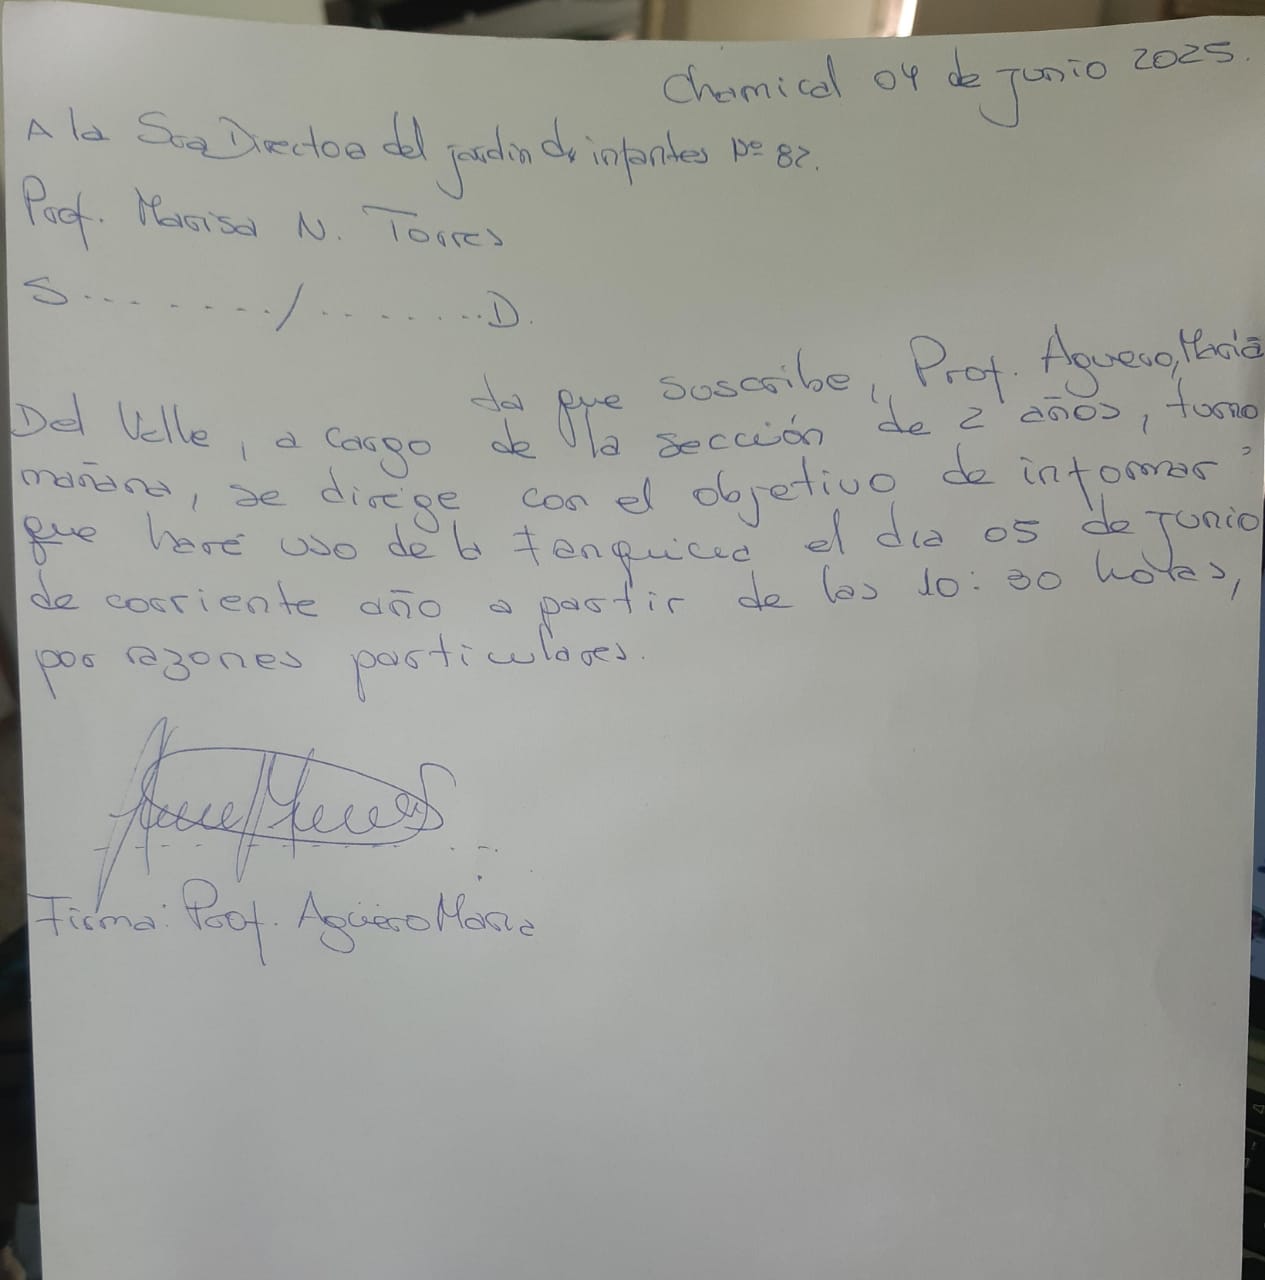 Chamical 04 de junio 2025.
A la Sra Directora del jardin de infantes Nº 82.
Prof. Marisa N. Torres
S......../.........D.
La que suscribe, Prof. Aguero, Maria
Del Valle, a cargo de la sección de 2 años, turno
mañana, se dirige con el objetivo de informar
que haré uso de la franquicia el dia 05 de junio
de corriente año a partir de las 10:30 horas,
por razones particulares.
Firma: Prof. Agüero Maria